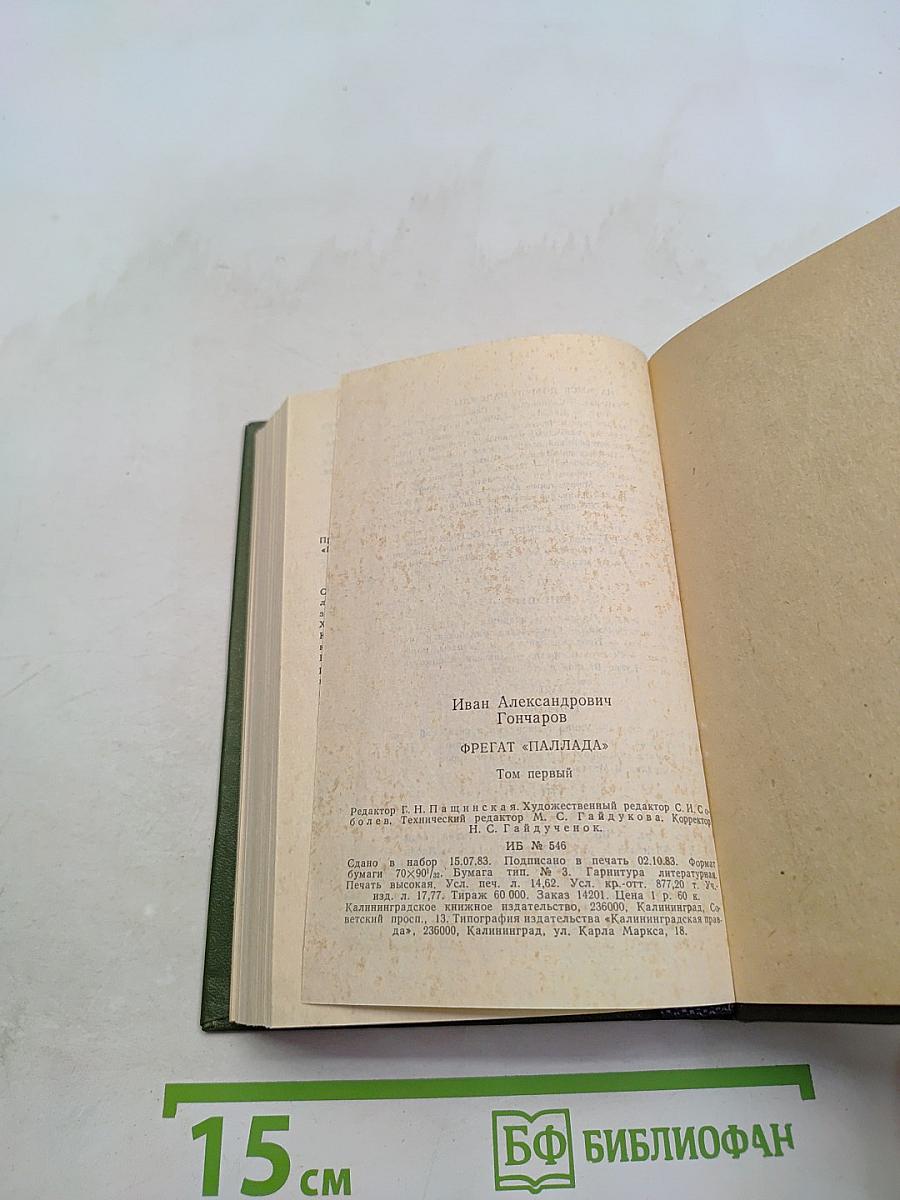 Иван Александрович
Гончаров
ФРЕГАТ «ПАЛЛАДА»
Том первый
Редактор Г. Н. Пащинская. Художественный редактор С. И. Со-
болев. Технический редактор М. С. Гайдукова. Корректор
Н. С. Гайдученок.
ИБ № 546
Сдано в набор 15.07.83. Подписано в печать 02.10.83. Формат
бумаги 70×90¹/₃₂. Бумага тип. № 3. Гарнитура литературная.
Печать высокая. Усл. печ. л. 14,62. Усл. кр.-отт. 877,20 т. Уч.-
изд. л. 17,77. Тираж 60 000. Заказ 14201. Цена 1 р. 60 к.
Калининградское книжное издательство, 236000, Калининград, Со-
ветский просп., 13. Типография издательства «Калининградская прав-
да», 236000, Калининград, ул. Карла Маркса, 18.
15 см
БФ БИБЛИОФАН